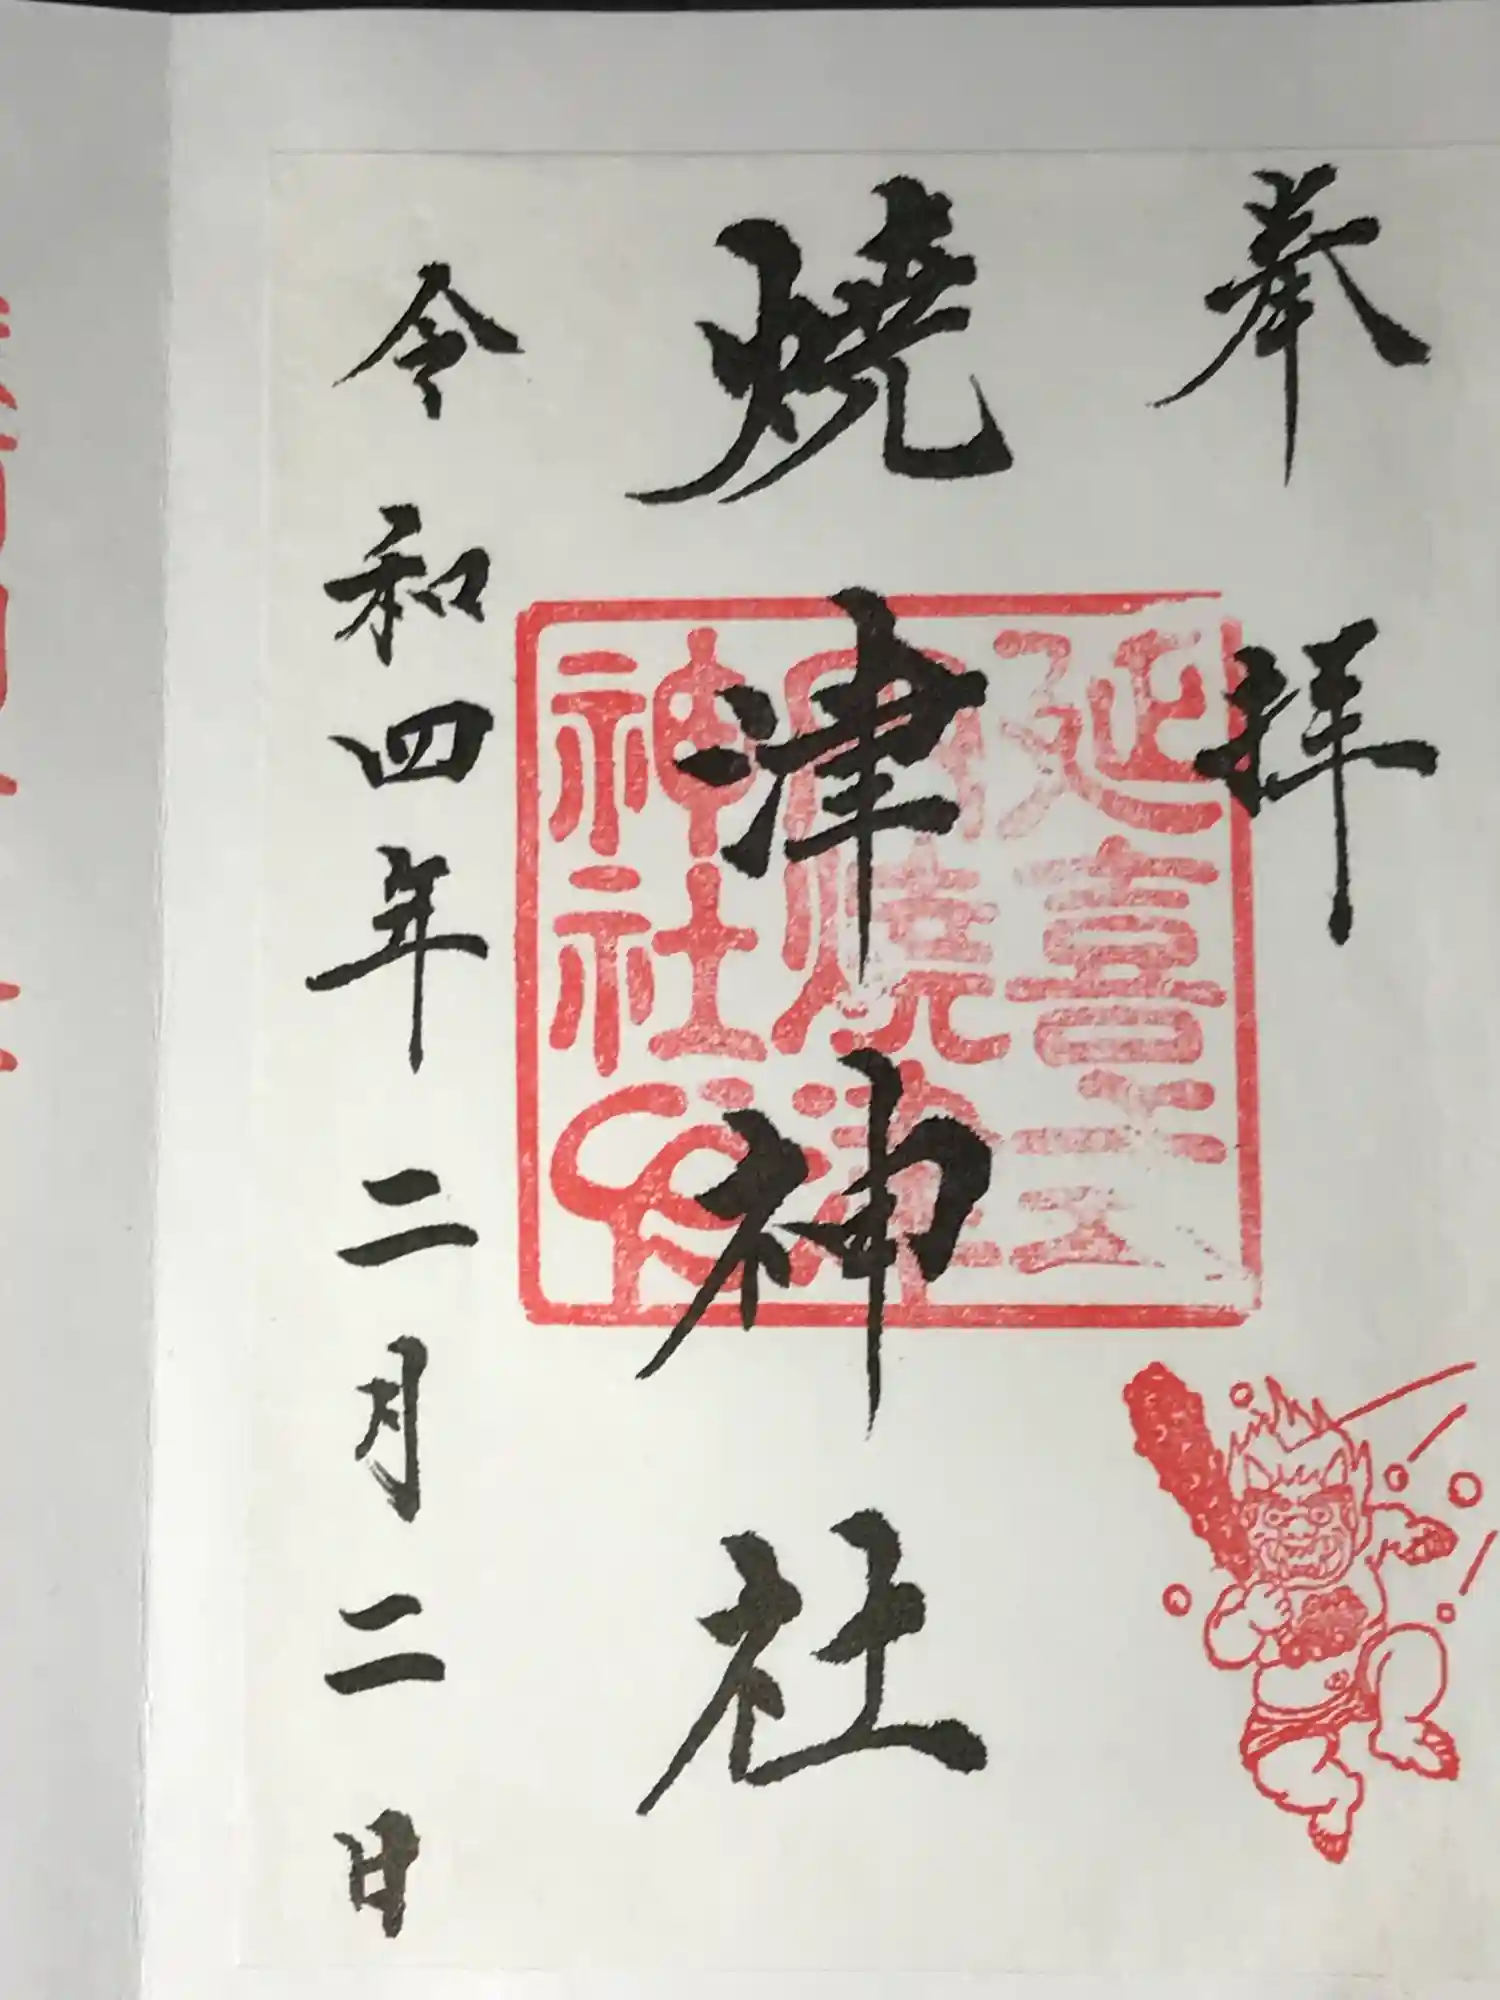 奉拝
焼津神社
延喜式
内焼津
神社印
令和四年二月二日